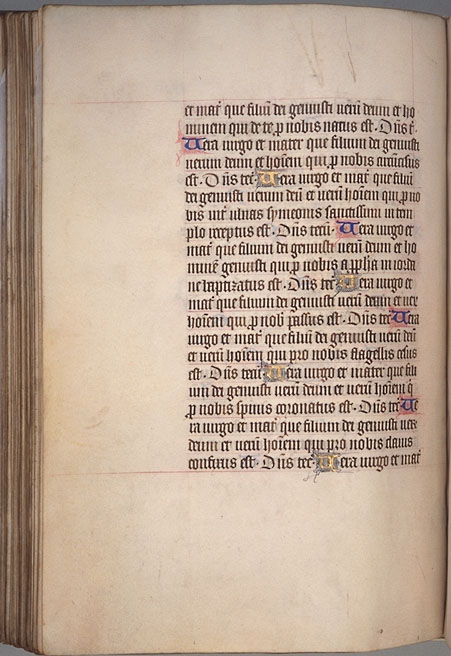 et mat̄ que filiū dei genuisti uerū deum et ho
minem qui de te ꝓ nobis natus est. Dn̄s t̄.
Uera uirgo et mater que filium dei genuisti
uerum deum et hoīem qui ꝓ nobis circūcisus
est. Dn̄s tec̄. Uera uirgo et mat̄ que filiū
dei genuisti uerum deū et uerū hoīem qui ꝓ no
bis int̄ ulnas symeonis sanctissimi in tem
plo receptus est. Dn̄s tecū. Uera uirgo et
mat̄ que filium dei genuisti uerū deum et ho
minē genuisti qui ꝓ nobis a in iorda
ne baptizatus est. Dn̄s tec̄ Uera uirgo et
mat̄ que filium dei genuisti uerū deum et uer̄
hoīem qui ꝓ nob̄ passus est. Dn̄s tec̄ Uera
uirgo et mat̄ que filiū dei genuisti uerū deū
et uerū hoīem qui pro nobis flagellis cesus
est. Dn̄s tecū Uera uirgo et mater que fili
um dei genuisti uerū deum et uerū hoīem q̇
ꝓ nobis spinis coronatus est. Dn̄s tec̄ Ue
ra uirgo et mat̄ que filium dei genuisti uer̄
deum et uerū hoīem qui pro nobis clauis
confixus est. Dn̄s tec̄ Uera uirgo et mat̄